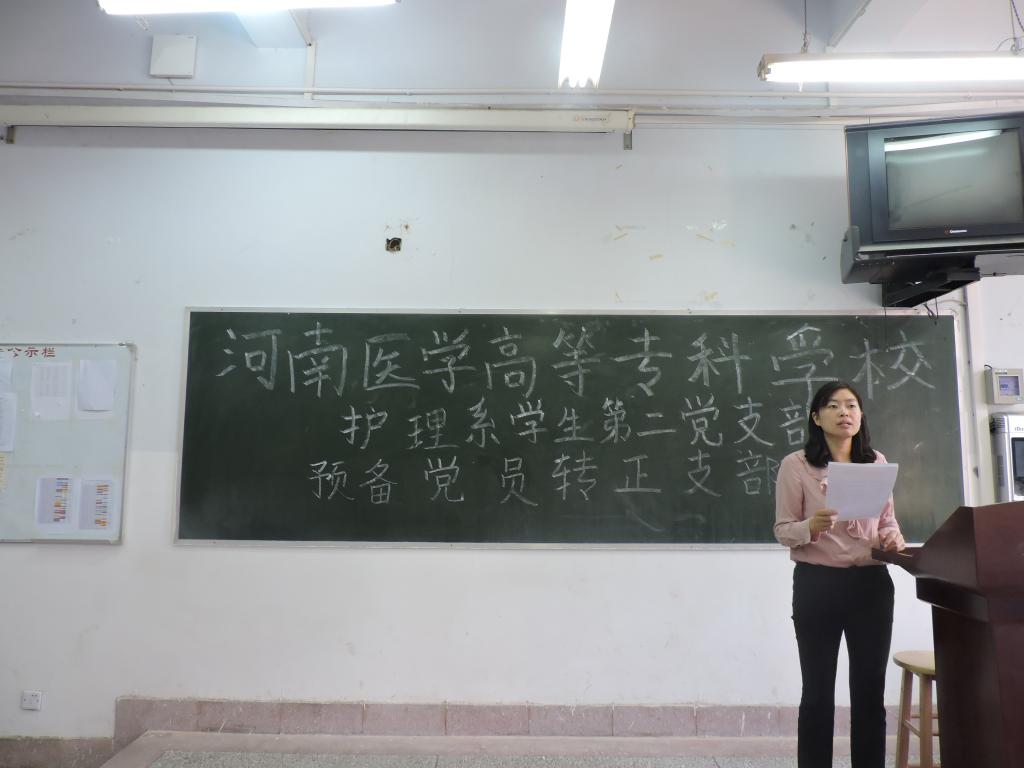 河南医学高等专科学校
护理系学生第二党支部
预备党员转正支部
公示栏